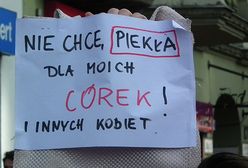 NIE CHCĘ PIEKŁA
DLA MOICH
CÓREK!
I INNYCH KOBIET.